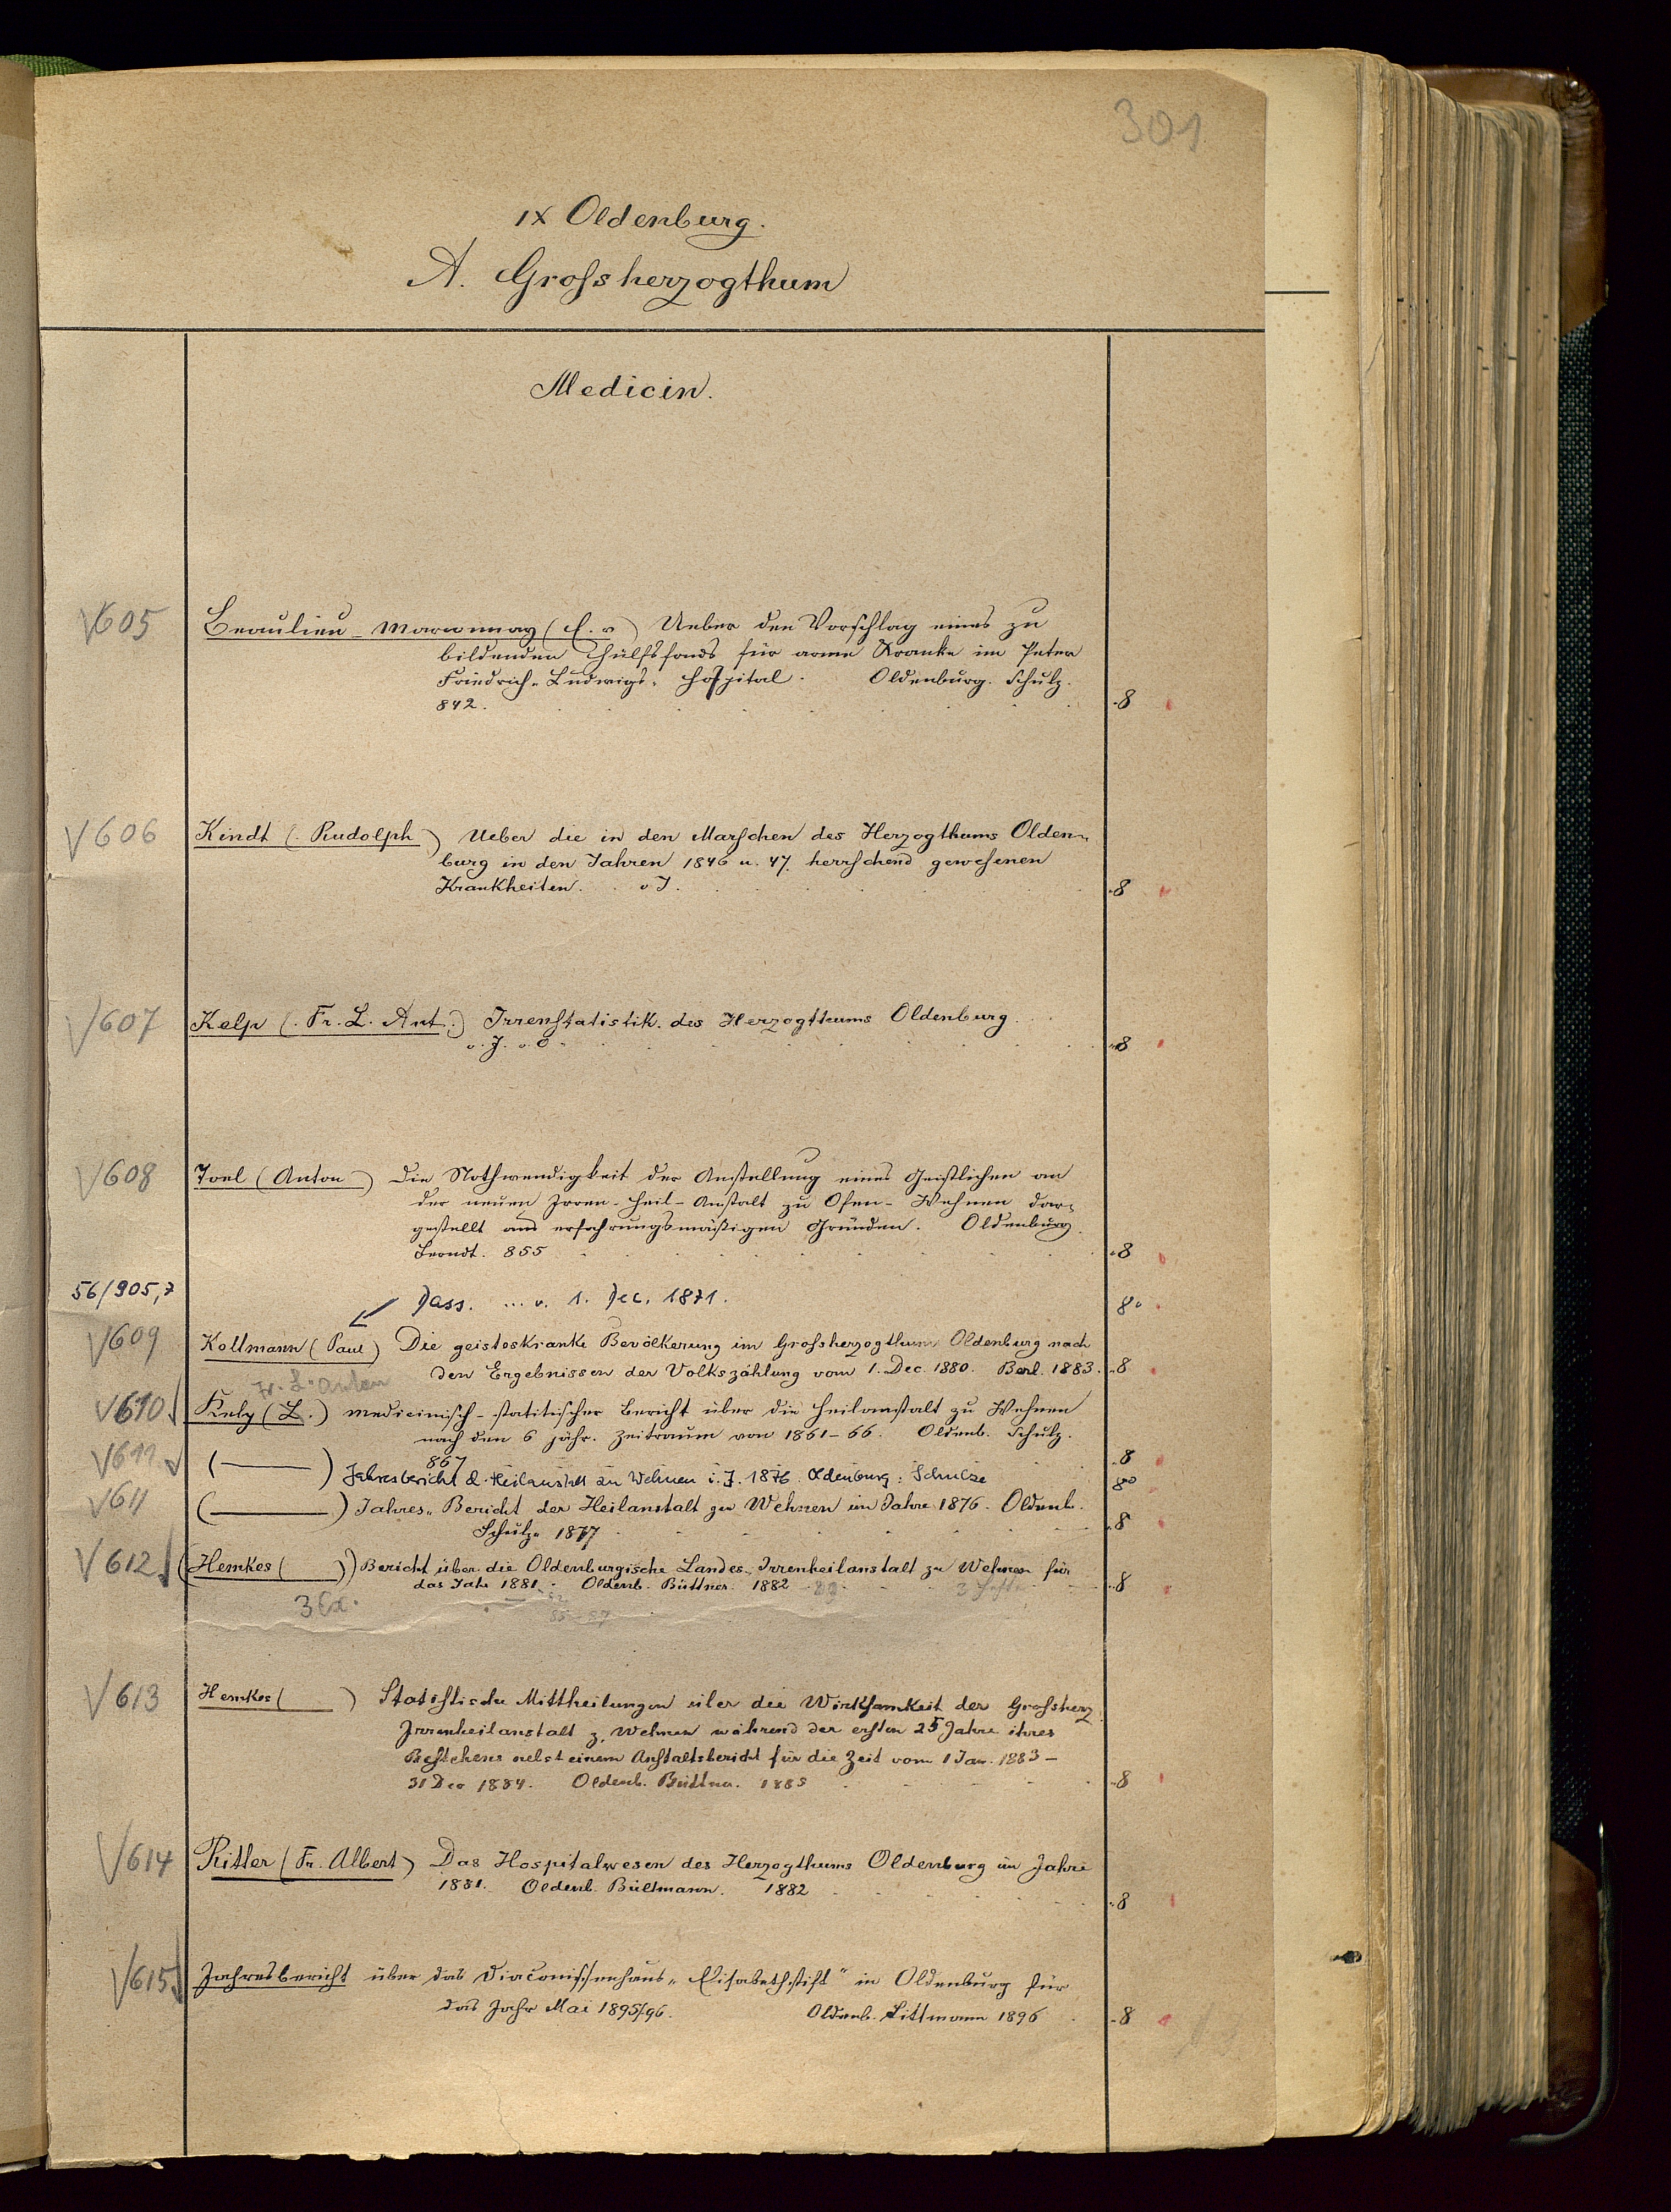 301
IX Oldenburg.
A. Großherzogthum
Medicin.
V605 Beaulieu-Marconnay (E. v) Ueber den Vorschlag eines zu
bildenden Hülfsfonds für arme Kranke im Peter
Friedrich-Ludwigs-Hospital. Oldenburg. Schulz.
842. 8
V606 Kindt (Rudolph) Ueber die in den Marschen des Herzogthums Olden-
burg in den Jahren 1846 u. 47. herrschend gewesenen
Krankheiten. o J. 8
V607 Kelp (Fr. L. Ant.) Irrenstatistik des Herzogthums Oldenburg.
o. J. o. O. 8
V608 Toel (Anton) Die Nothwendigkeit der Anstellung eines Geistlichen an
der neuen Irren-Heil-Anstalt zu Ofen-Wehnen dar-
gestellt aus erfahrungsmäßigen Gründen. Oldenburg.
Berndt. 855 8
56/905,7 Dass. ... v. 1. Dec. 1871. 8°
V609 Kollmann (Paul) Die geisteskranke Bevölkerung im Großherzogthum Oldenburg nach
den Ergebnissen der Volkszählung vom 1. Dec. 1880. Berl. 1883. 8
Fr. L. Anton
V610 Kelp (L.) medicinisch-statitischer Bericht über die Heilanstalt zu Wehnen
nach den 6 jähr. Zeitraum von 1861-66. Oldenb. Schulz.
867 8
V611 (———) Jahresbericht d. Heilanstalt zu Wehnen i. J. 1876. Oldenburg: Schulze 8°
V611 (———) Jahres-Bericht der Heilanstalt zu Wehnen im Jahre 1876. Oldenb.
Schulz. 1877 8
V612 (Hemkes (———)) Bericht über die Oldenburgische Landes-Irrenheilanstalt zu Wehnen für
das Jahr 1881. Oldenb. Büttner. 1882 3 Hefte 8
3 Ex. 85-87
V613 Hemkes (———) Statistische Mittheilungen über die Wirksamkeit der Großherz.
Irrenheilanstalt z. Wehnen während der ersten 25 Jahre ihres
Bestehens nebst einem Anstaltsbericht für die Zeit vom 1 Jan. 1883-
31 Dec 1884. Oldenb. Büttner. 1885 8
V614 Ritter (Fr. Albert) Das Hospitalwesen des Herzogthums Oldenburg im Jahre
1881. Oldenb. Bültmann. 1882 8
V615 Jahresbericht über das Diaconissenhaus "Elisabethstift" in Oldenburg für
das Jahr Mai 1895/96. Oldenb. Littmann 1896 8